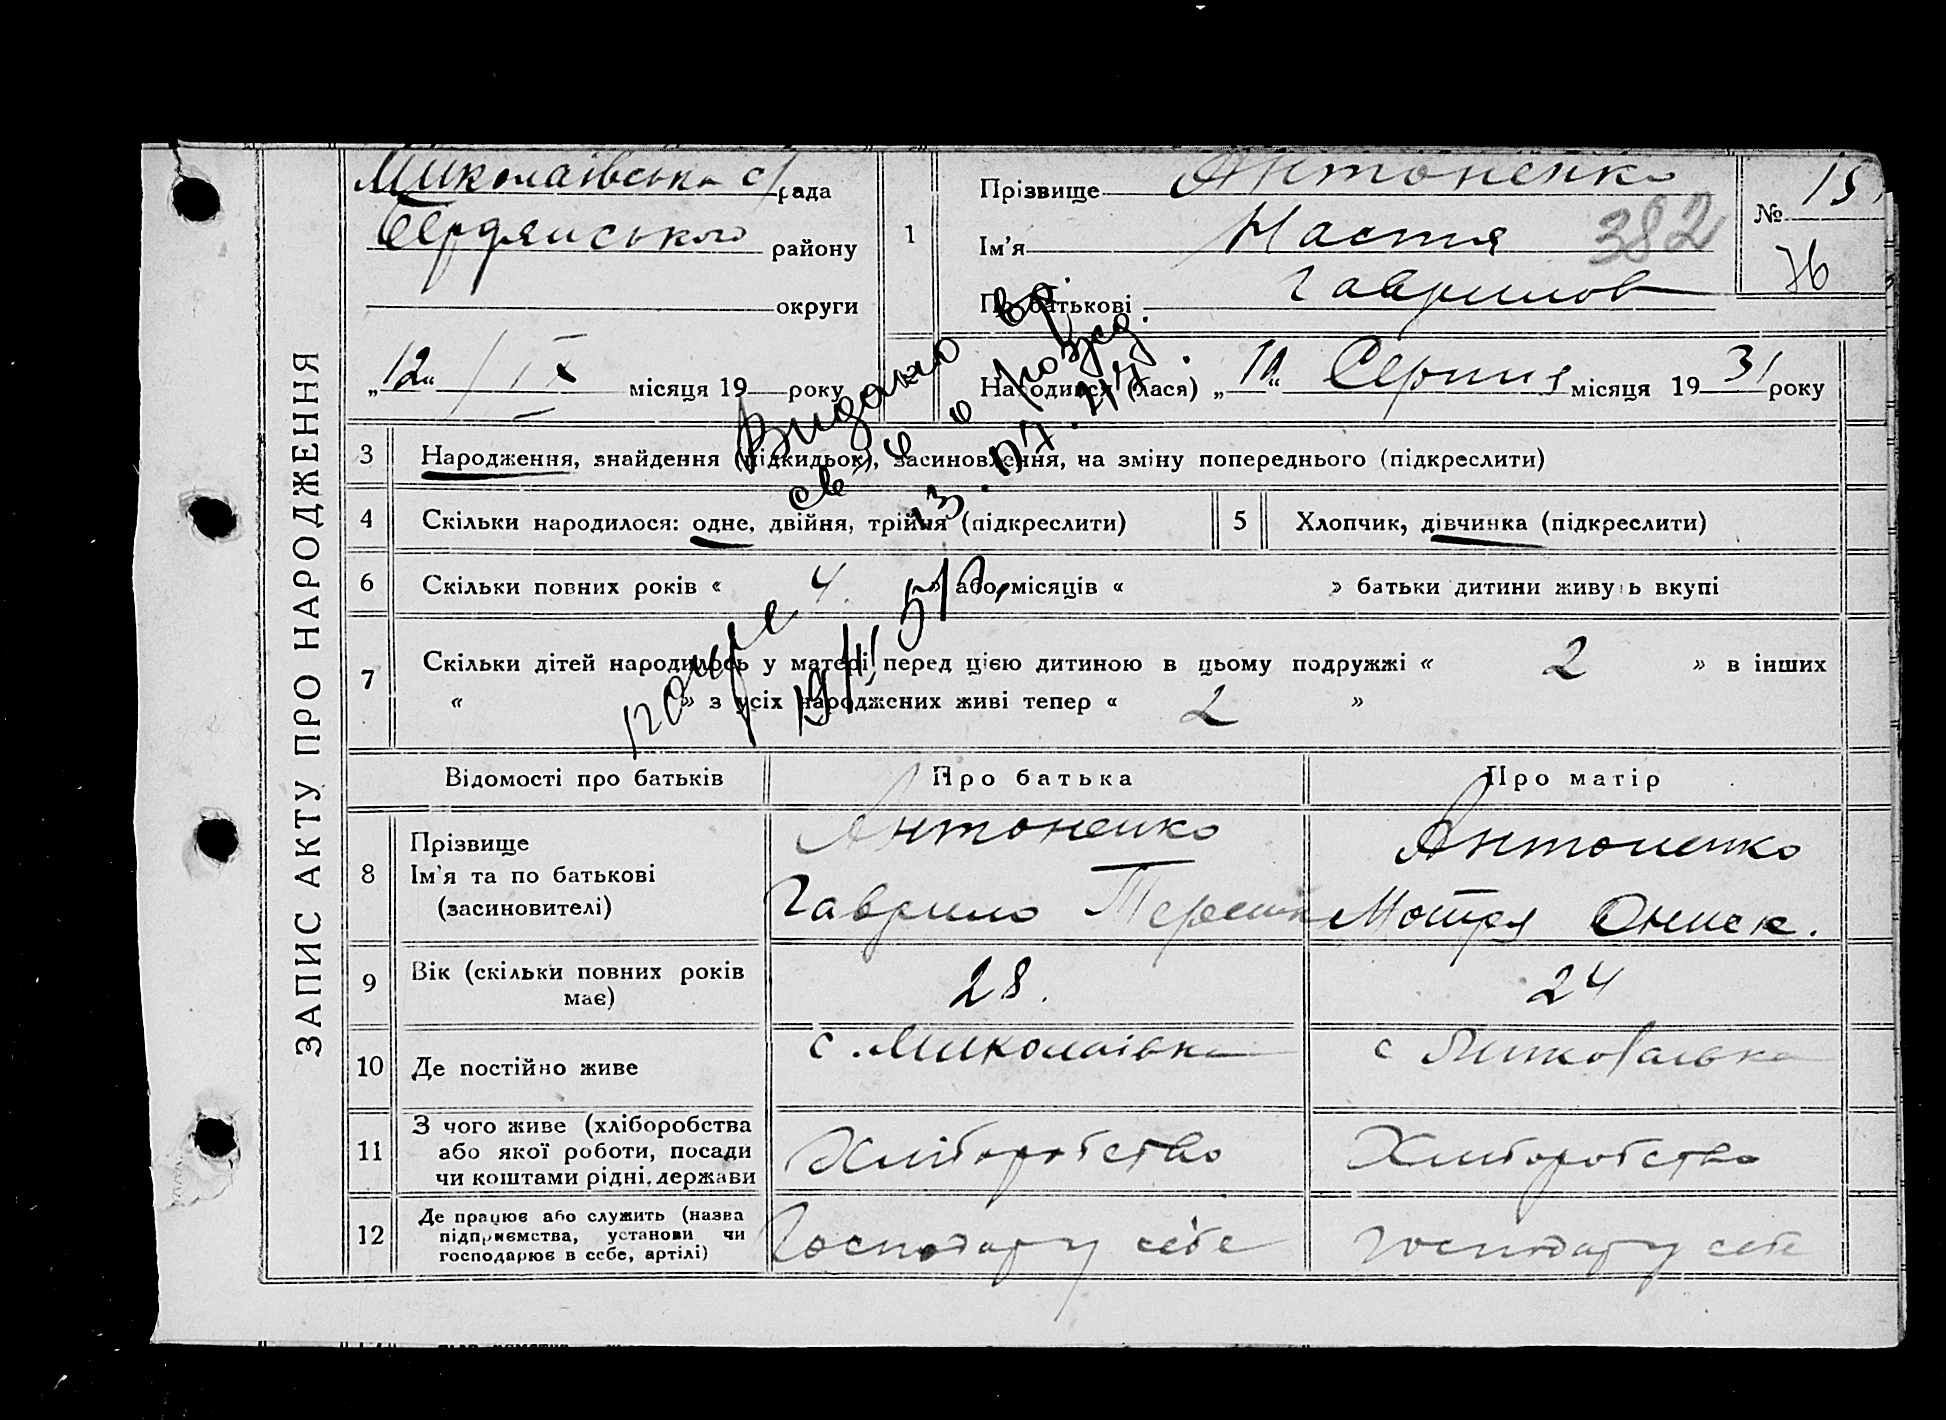 ЗАПИС АКТУ ПРО НАРОДЖЕННЯ
Миколаївська с/рада
Бердянського району
округи
„12“ / IX місяця 19 року
1
Прізвище Антоненко
Ім'я Настя
По батькові Гаврилов
382
№ 15
Народився (лася) „ “ Серпня місяця 1931 року
Видано
св о
13.
3 Народження, знайдення (підкидьок), засиновлення, на зміну попереднього (підкреслити)
4 Скільки народилося: одне, двійня, трійня (підкреслити)
5 Хлопчик, дівчинка (підкреслити)
6 Скільки повних років « 4. » або місяців « » батьки дитини живуть вкупі
7 Скільки дітей народилось у матері перед цією дитиною в цьому подружжі « 2 » в інших
« » з усіх народжених живі тепер « 2 »
Відомості про батьків
Про батька
Про матір
8 Прізвище
Ім'я та по батькові
(засиновителі)
Антоненко
Гаврило
Антоненко
Мотря Ониск.
9 Вік (скільки повних років
має)
28.
24
10 Де постійно живе
с. Миколаівка
с Миколаівка
11 З чого живе (хліборобства
або якої роботи, посади
чи коштами рідні, держави
Хліборобство
Хліборобство
12 Де працює або служить (назва
підприємства, установи чи
господарює в себе, артілі)
Господару себе
Господару себе